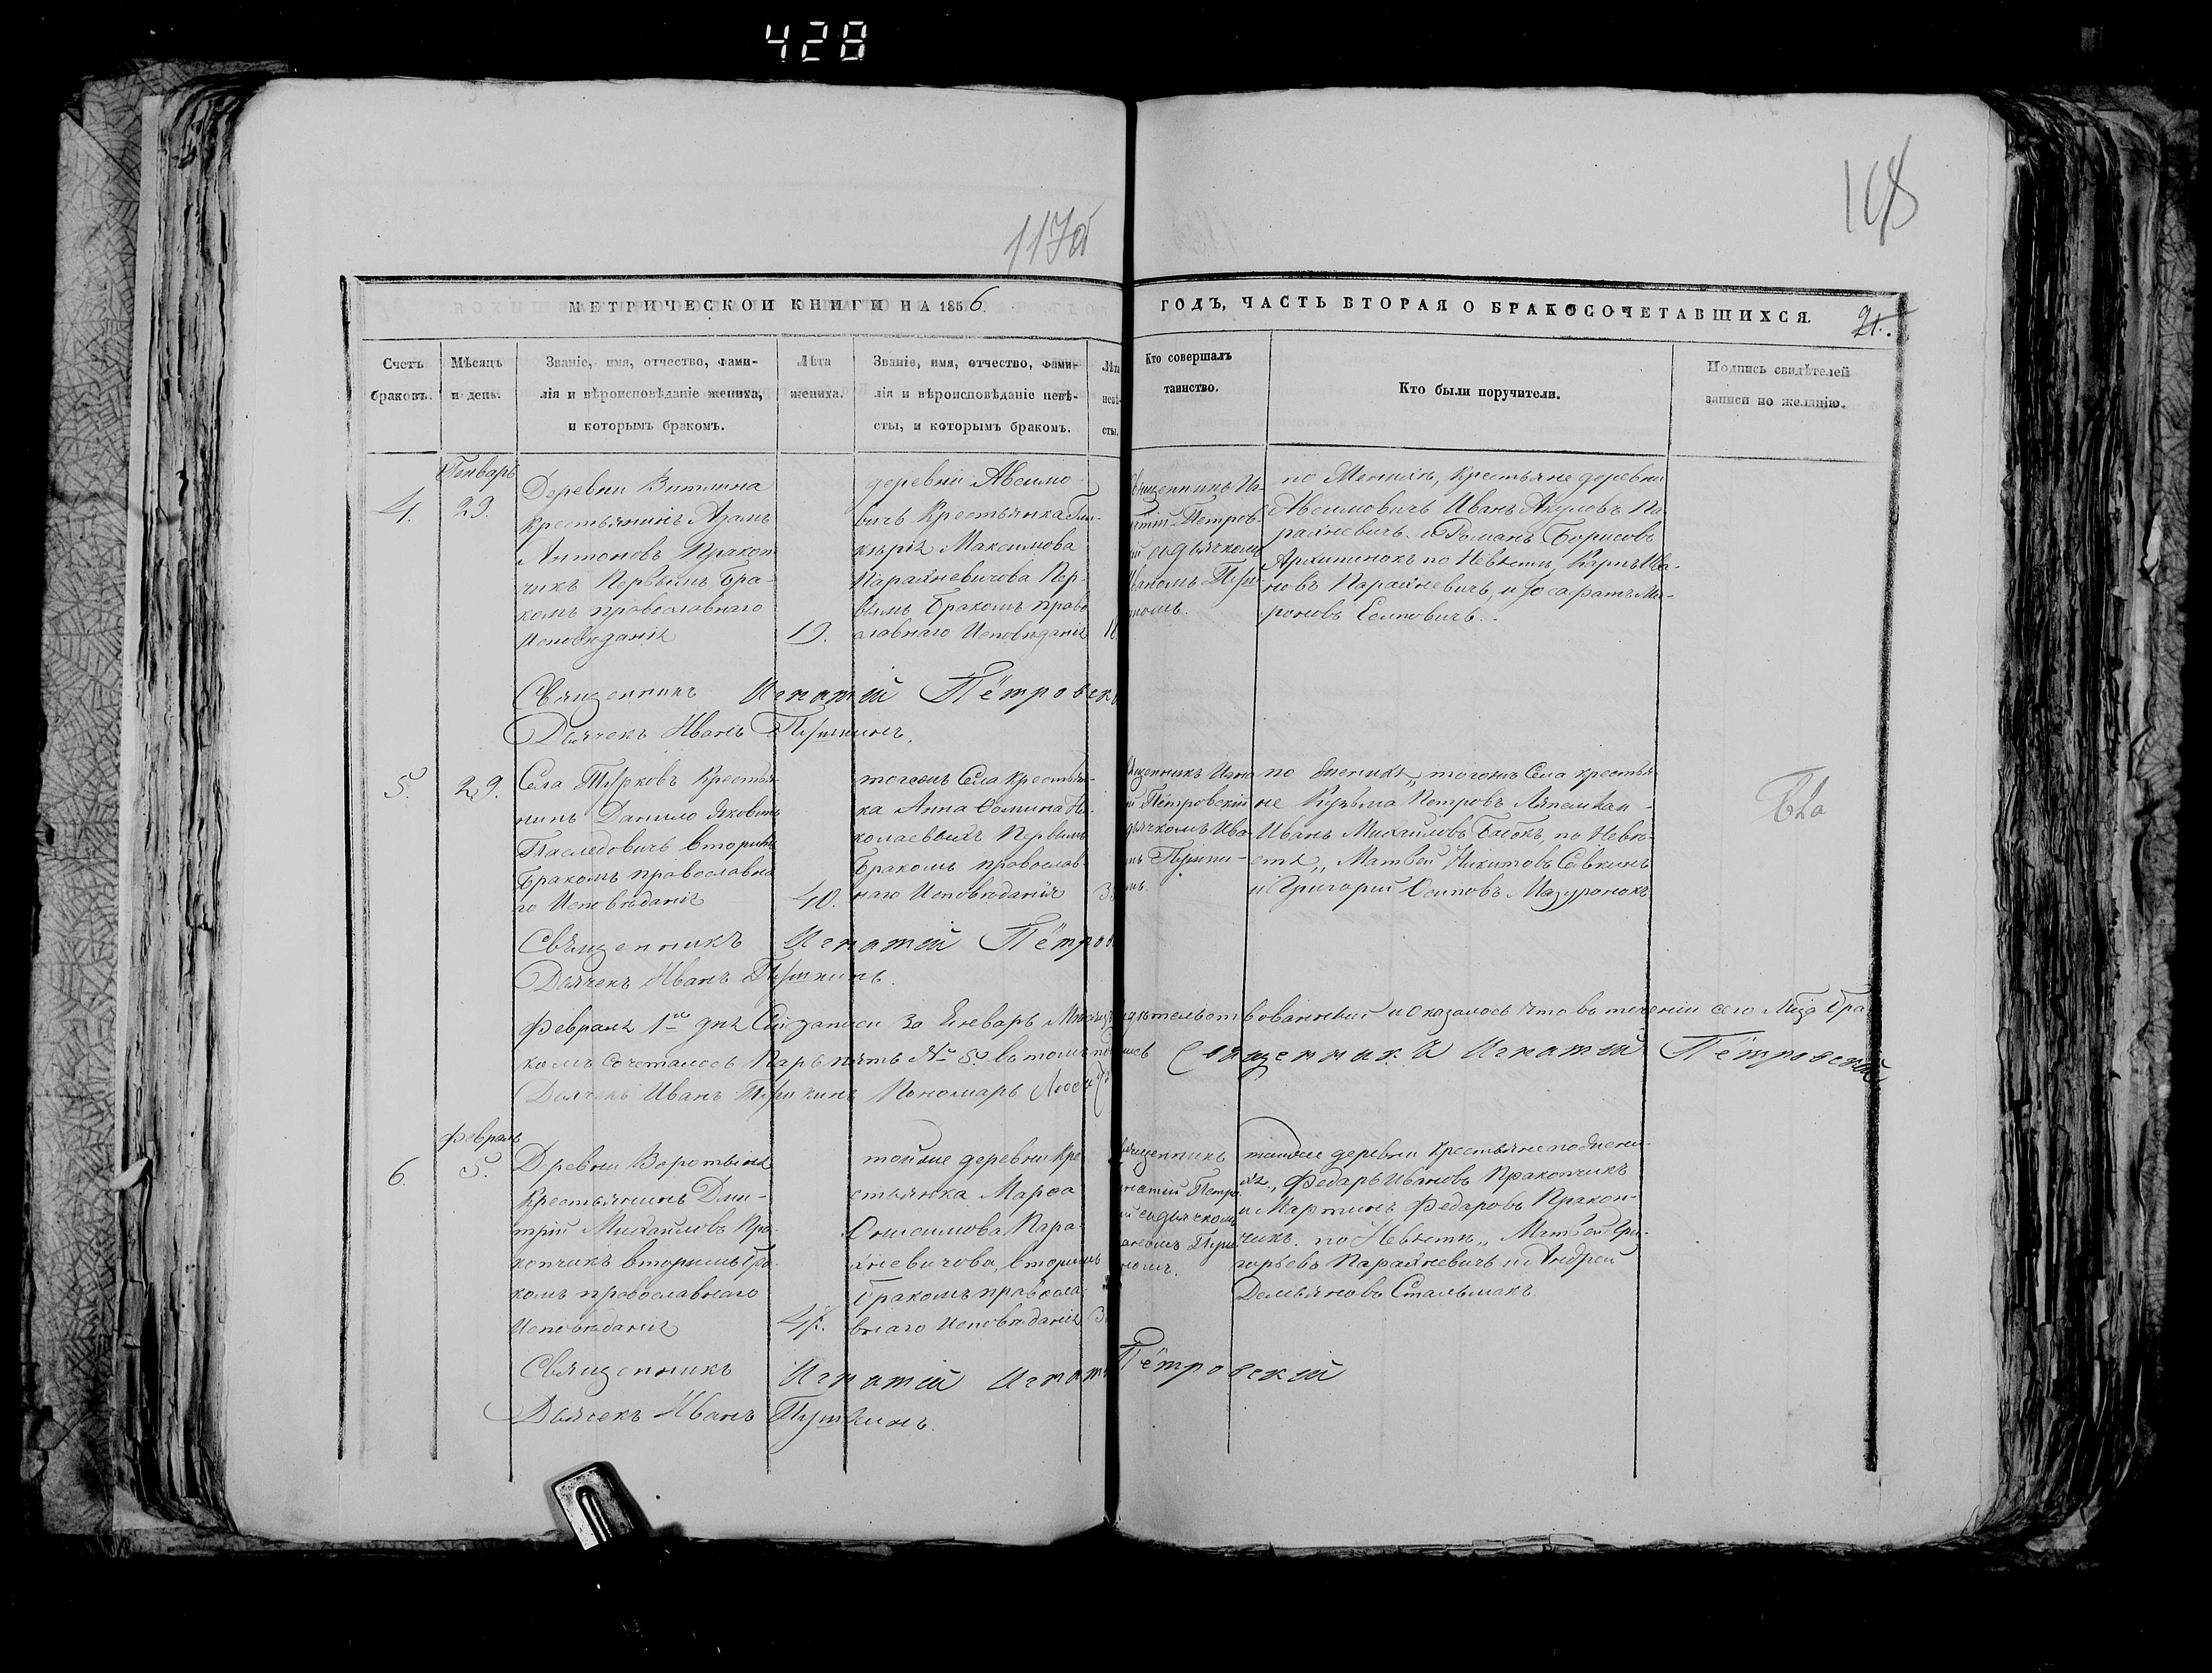 428
117об
168
МЕТРИЧЕСКОЙ КНИГИ НА 1856.
ГОДЪ, ЧАСТЬ ВТОРАЯ О БРАКОСОЧЕТАВШИХСЯ.
21.
Счетъ браковъ.
Мѣсяцъ и день.
Званіе, имя, отчество, фами-
лія и вѣроисповѣданіе жениха,
и которымъ бракомъ.
Лѣта жениха.
Званіе, имя, отчество, фами-
лія и вѣроисповѣданіе невѣ-
сты, и которымъ бракомъ.
Лѣта
невѣ-
сты.
Кто совершалъ
таинство.
Кто были поручители.
Подпись свидѣтелей
записи по желанію.
4.
Генварь
29.
Деревни
крестьянинъ Адамъ
Антоновъ Пракоп
чикъ Первымъ бра-
комъ православнаго
Исповѣданія
19.
деревни Авсимо-
вичь Крестьянка Гли-
керія Максимова
Парахневичова Пер-
вымъ бракомъ право
славнаго Исповѣданія
Священникъ Иг-
Петров-
дьячкомъ
по Женихѣ, крестьяне деревни
Авсимовичь Иванъ Акуловъ Па
рахневичь. и Романъ Борисовъ
Архипенокъ по Невѣсты, Карпъ Ива-
новъ Парахневичь, и Іосафатъ Ми-
роновъ Есиповичь.
Священникъ Игнатій Петровск
Дьячекъ Иванъ Пушкинъ.
5.
29.
Села Турковъ Крестья
нинъ Данило Яковлевъ
Последовичь вторымъ
бракомъ православна
го Исповѣданія
40.
тогожъ Села крестьян-
ка Анна Фомина Ни-
колаевыхъ Первымъ
бракомъ православ-
наго Исповѣданія
Петровскій
дьячкомъ Ива-
Пушки-
по Женихѣ, тогожъ Села крестья
не Кузьма Петровъ
Иванъ Михайловъ Бабокъ, по Невѣ-
стѣ, Матвей Никитовъ Савкинъ
и Григорій Осиповъ Мазуронокъ
Священникъ Игнатій Петров
Дьячекъ Иванъ Пушкинъ.
Февраля 1го дня Сіи записи за Генварь Мѣсяцъ
свидѣтельствованны и оказалось что въ теченіи сего Мца бра
комъ сочеталось Паръ пять № 5. въ томъ
Священникъ Игнатій Петровскій
Дьячекъ Иванъ Пушкинъ Пономарь
6.
Февраль
5.
Древни Воротынь
Крестьянинъ Дми-
трій Михайловъ Пра-
копчикъ вторымъ бра-
комъ православнаго
Исповѣданія
тойже деревни Кре
стьянка Марфа
Онисимова Пара-
хневичова, вторымъ
бракомъ правосла
внаго Исповѣданія
Священникъ
Игнатій Петро
дьячкомъ
Пуш
тойже деревни Крестьяне по Жени-
хѣ, Федаръ Ивановъ Пракопчикъ
и Мартинъ Федаровъ Пракоп-
чикъ. по Невѣсты, Матвей Гри-
горьевъ Парахневичь и Андрей
Демьяновъ Стальмакъ.
Священникъ Игнатій Петровскій
Дьячекъ Иванъ Пушкинъ.